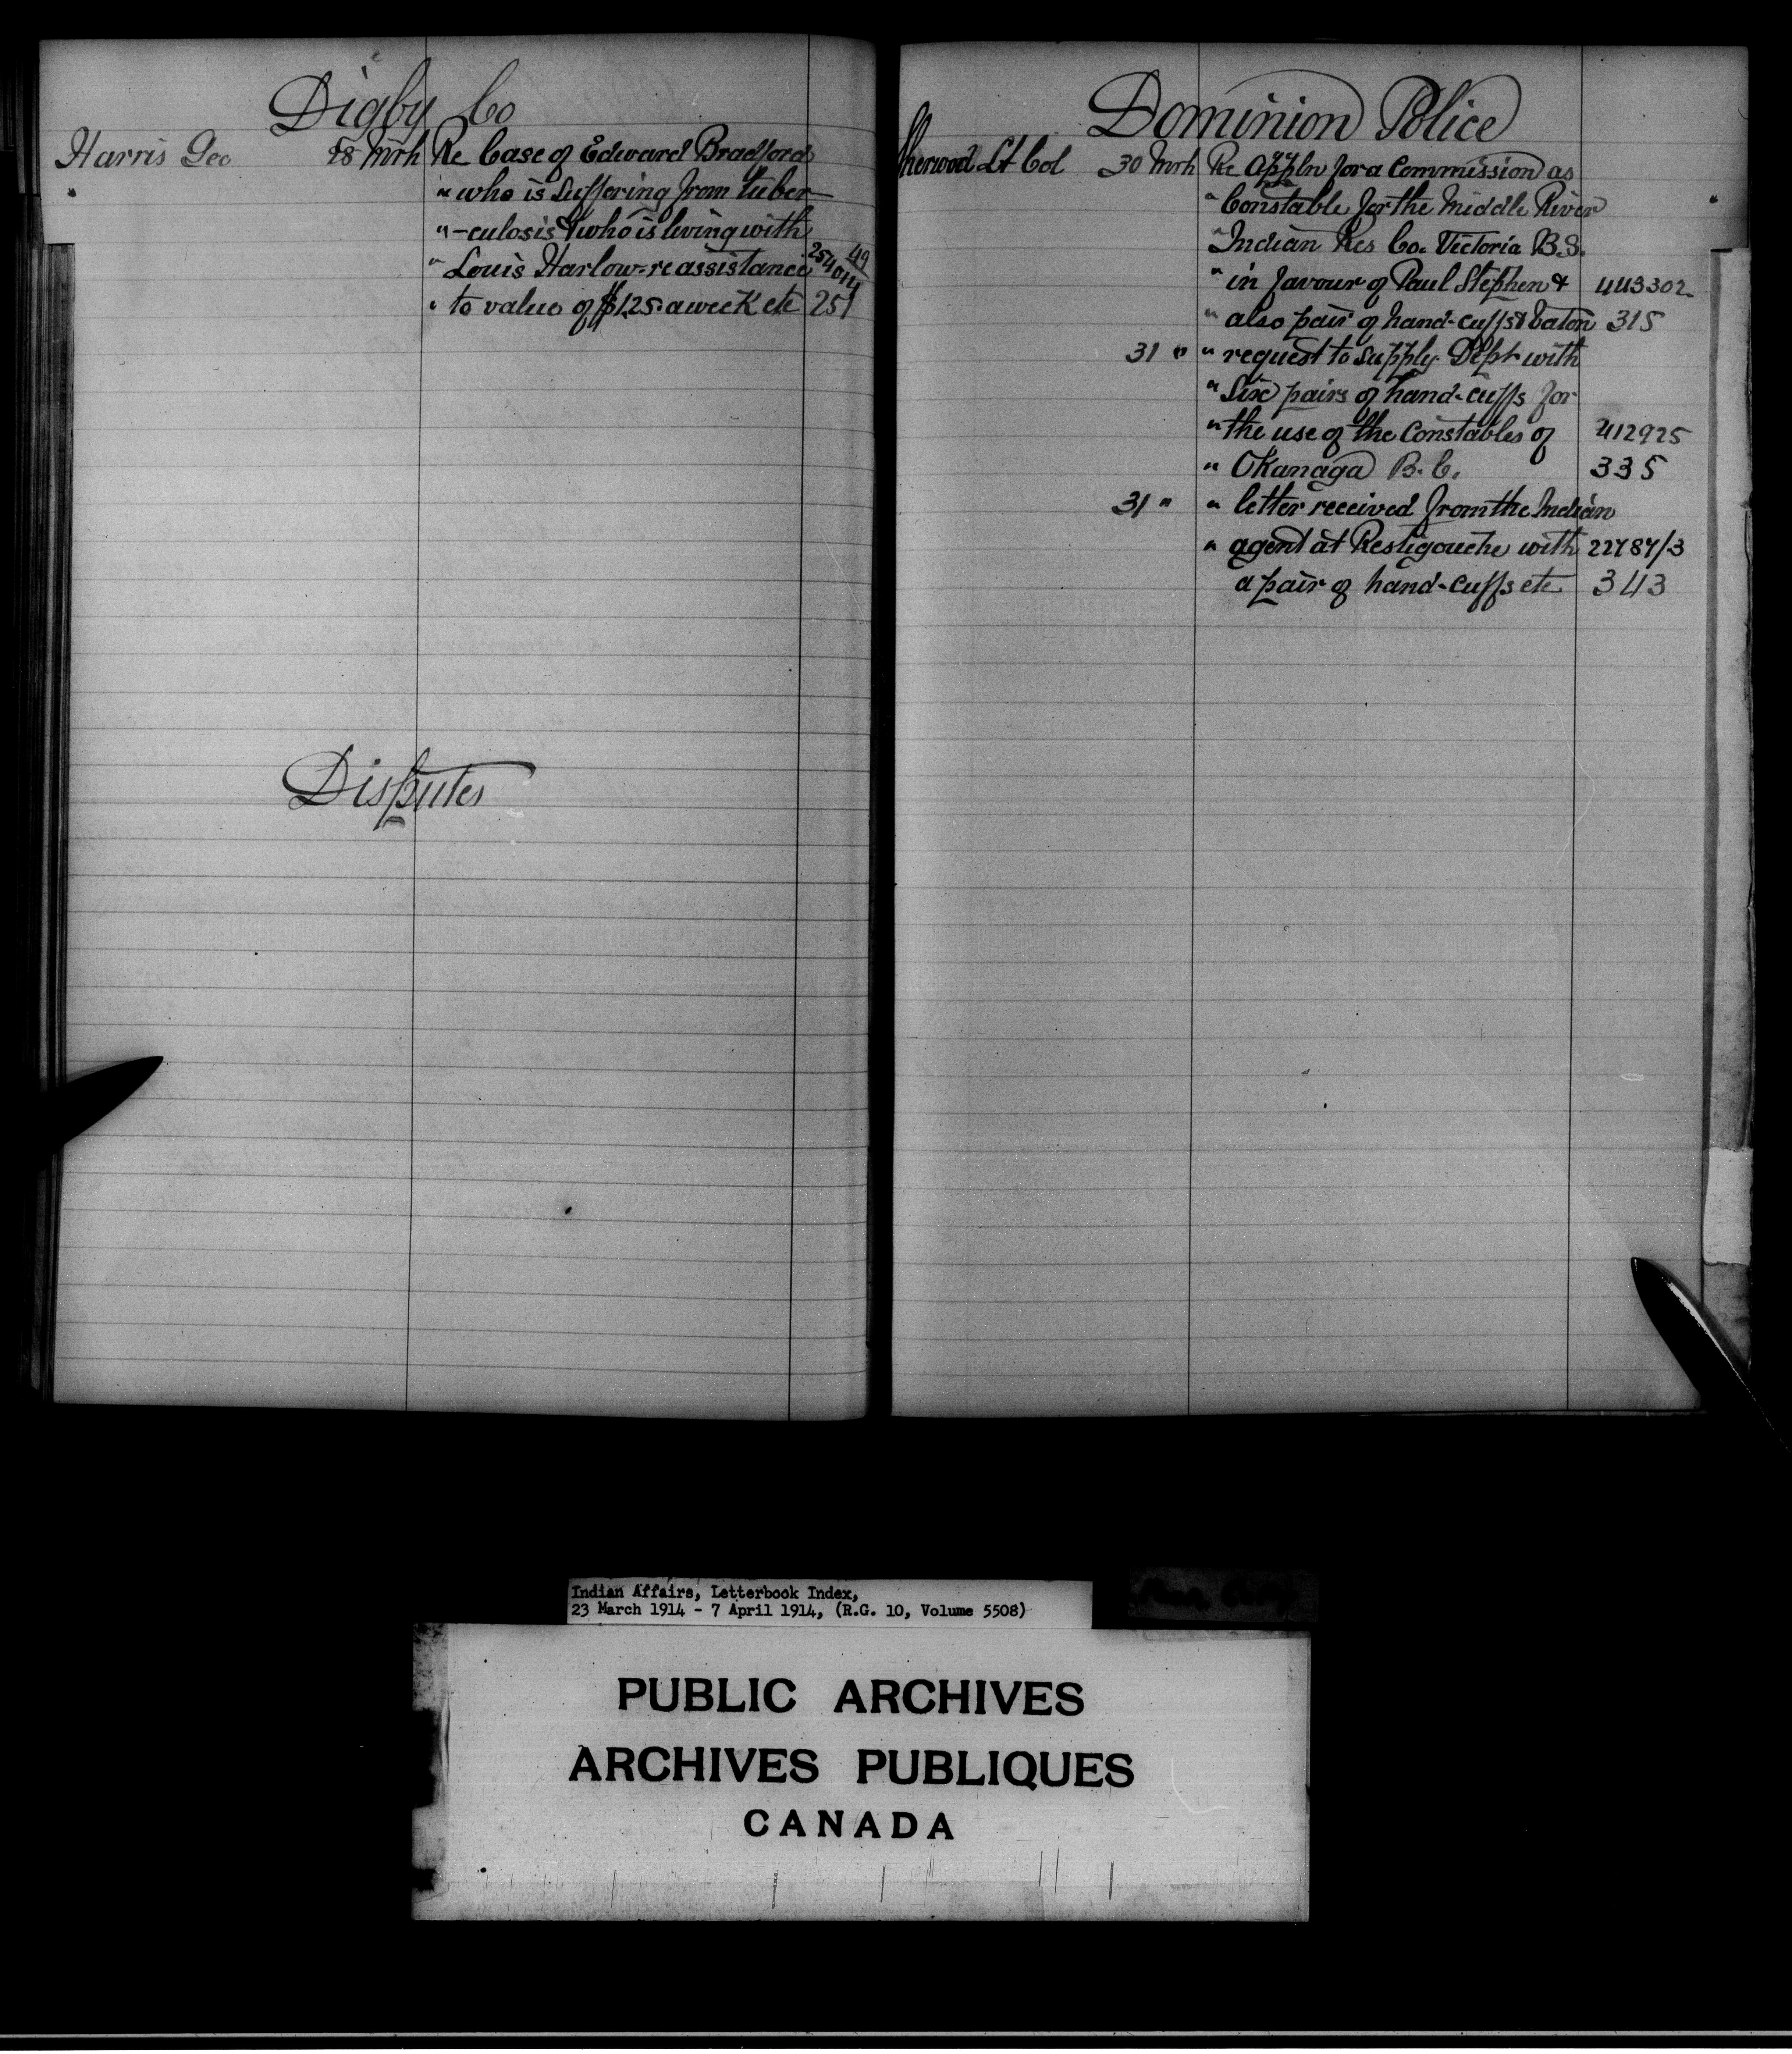 Digby Co
Harris Geo 28 Mrh Re Case of Edward Bradford
" who is suffering from tuber-
" -culosis & who is living with
" Louis Harlow - re assistance 254014/49
" to value of $1.25 a week etc 251
Disputes
Dominion Police
Sherwood Lt Col 30 Mrh Re Appln for a Commission as
" Constable for the Middle River
" Indian Res Co. Victoria B.S.
" in favour of Paul Stephen & 443302
" also pair of hand-cuffs & baton 315
31 " " request to supply Dept with
" Six pairs of hand-cuffs for
" the use of the Constables of 412925
" Okanaga B.C. 335
31 " " letter received from the Indian
" agent at Restigouche with 22787/3
a pair of hand-cuffs etc 343
Indian Affairs, Letterbook Index,
23 March 1914 - 7 April 1914, (R.G. 10, Volume 5508)
PUBLIC ARCHIVES
ARCHIVES PUBLIQUES
CANADA